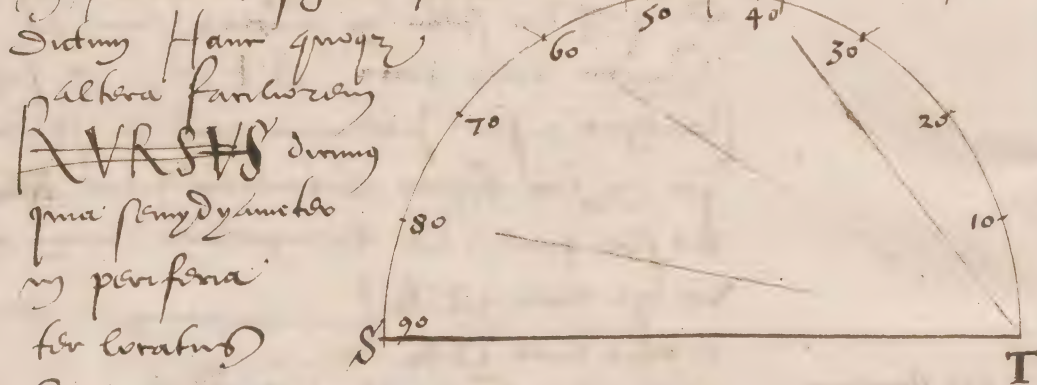 Dictum Hanc quoqz
altera faciliorem
RVRSVS dicimus
quia semydyameter
in periferia
ter locatus
50 40
60 30
70 20
80 10
90
S T